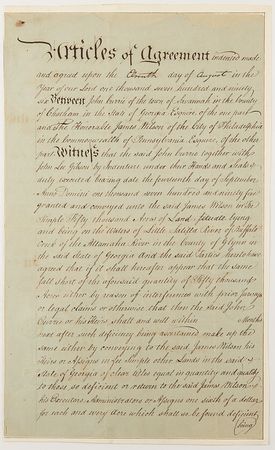 Articles of Agreement made
and agreed upon the Eleventh day of August in the
Year of our Lord one thousand seven hundred and ninety
six Between John Currie of the town of Savannah in the County
of Chatham in the State of Georgia Esquire of the one part
and the Honorable James Wilson of the City of Philadelphia
in the Commonwealth of Pennsylvania Esquire of the other
part Witness that the said John Currie together with
John Mc Gilson by Indenture under their Hands and Seals
duly executed bearing date the fourteenth day of September
Anno Domini one thousand seven hundred and ninety five
granted and conveyed unto the said James Wilson in
fee simple Fifty thousand Acres of Land situate lying
and being on the Waters of Little Satilla River & Buffaloe
Creek of the Altamaha River in the County of Glynn in
the said State of Georgia and the said Parties thereto have
agreed that if it shall hereafter appear that the same
fall short of the aforesaid quantity of Fifty thousand
Acres either by reason of interferences with prior Surveys
or legal claims or otherwise that then the said John
Currie or his Heirs shall and will within Months
next after such deficiency being ascertained make up the
same either by conveying to the said James Wilson his
Heirs or Assigns in fee simple other Lands in the said
State of Georgia of clear titles equal in quantity and quality
to those so deficient or return to the said James Wilson
his Executors Administrators or Assigns one sixth of a dollar
for each and every Acre which shall so be found deficient